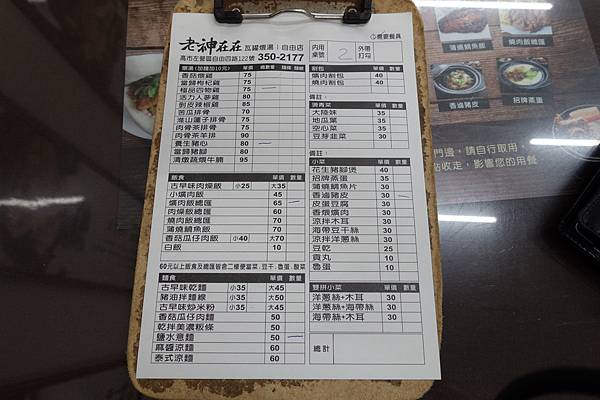 老神在在 瓦罐煨湯｜自由店
高市左營區自由四路122號 350-2177
內用桌號 2 外帶打勾
需要餐具
煨湯(加辣加10元) 單價 總數量
香菇煨雞 75
當歸枸杞雞 75
極品四物雞 75
活力人蔘雞 75
剝皮辣椒雞 75
苦瓜排骨 70
淮山蓮子排骨 70
肉骨茶排骨 70
肉骨茶羊排 90
養生豬心 80
當歸豬腳 80
清燉蔬煨牛腩 95
飯食 單價 數量
古早味肉燥飯 小25 大35
小爌肉飯 45
爌肉飯總匯 65
肉燥飯總匯 60
燒肉飯總匯 70
蒲燒鯛魚飯 70
香菇瓜仔肉飯 小40 大70
白飯 10
60元以上飯食及總匯皆會二樣便當菜.豆干.魯蛋.酸菜
麵食 單價 數量
古早味乾麵 小35 大45
豬油拌麵線 小35 大50
古早味炒米粉 小35 大45
香菇瓜仔肉麵 50
乾拌美濃粄條 50
鹽水意麵 50
麻醬涼麵 60
泰式涼麵 60
割包 單價 數量
爌肉割包 40
燒肉割包 40
備註：
燙青菜 單價 數量
大陸妹 35
地瓜葉 35
空心菜 35
豆芽韭菜 30
備註：
小菜 單價 數量
花生豬腳煲 40
招牌蒸蛋 35
蒲燒鯛魚片 30
香滷豬皮 30
皮蛋豆腐 30
香煨爌肉 30
涼拌木耳 30
海帶豆干絲 30
涼拌洋蔥絲 30
豆乾 25
貢丸 10
魯蛋 10
雙拼小菜 單價 數量
洋蔥絲+木耳 30
洋蔥絲+海帶絲 30
海帶絲+木耳 30
總計
蒲燒鯛魚飯
燒肉飯總匯
香滷豬皮
招牌蒸蛋
門邊，請自行取用，
點收走，影響您的用餐